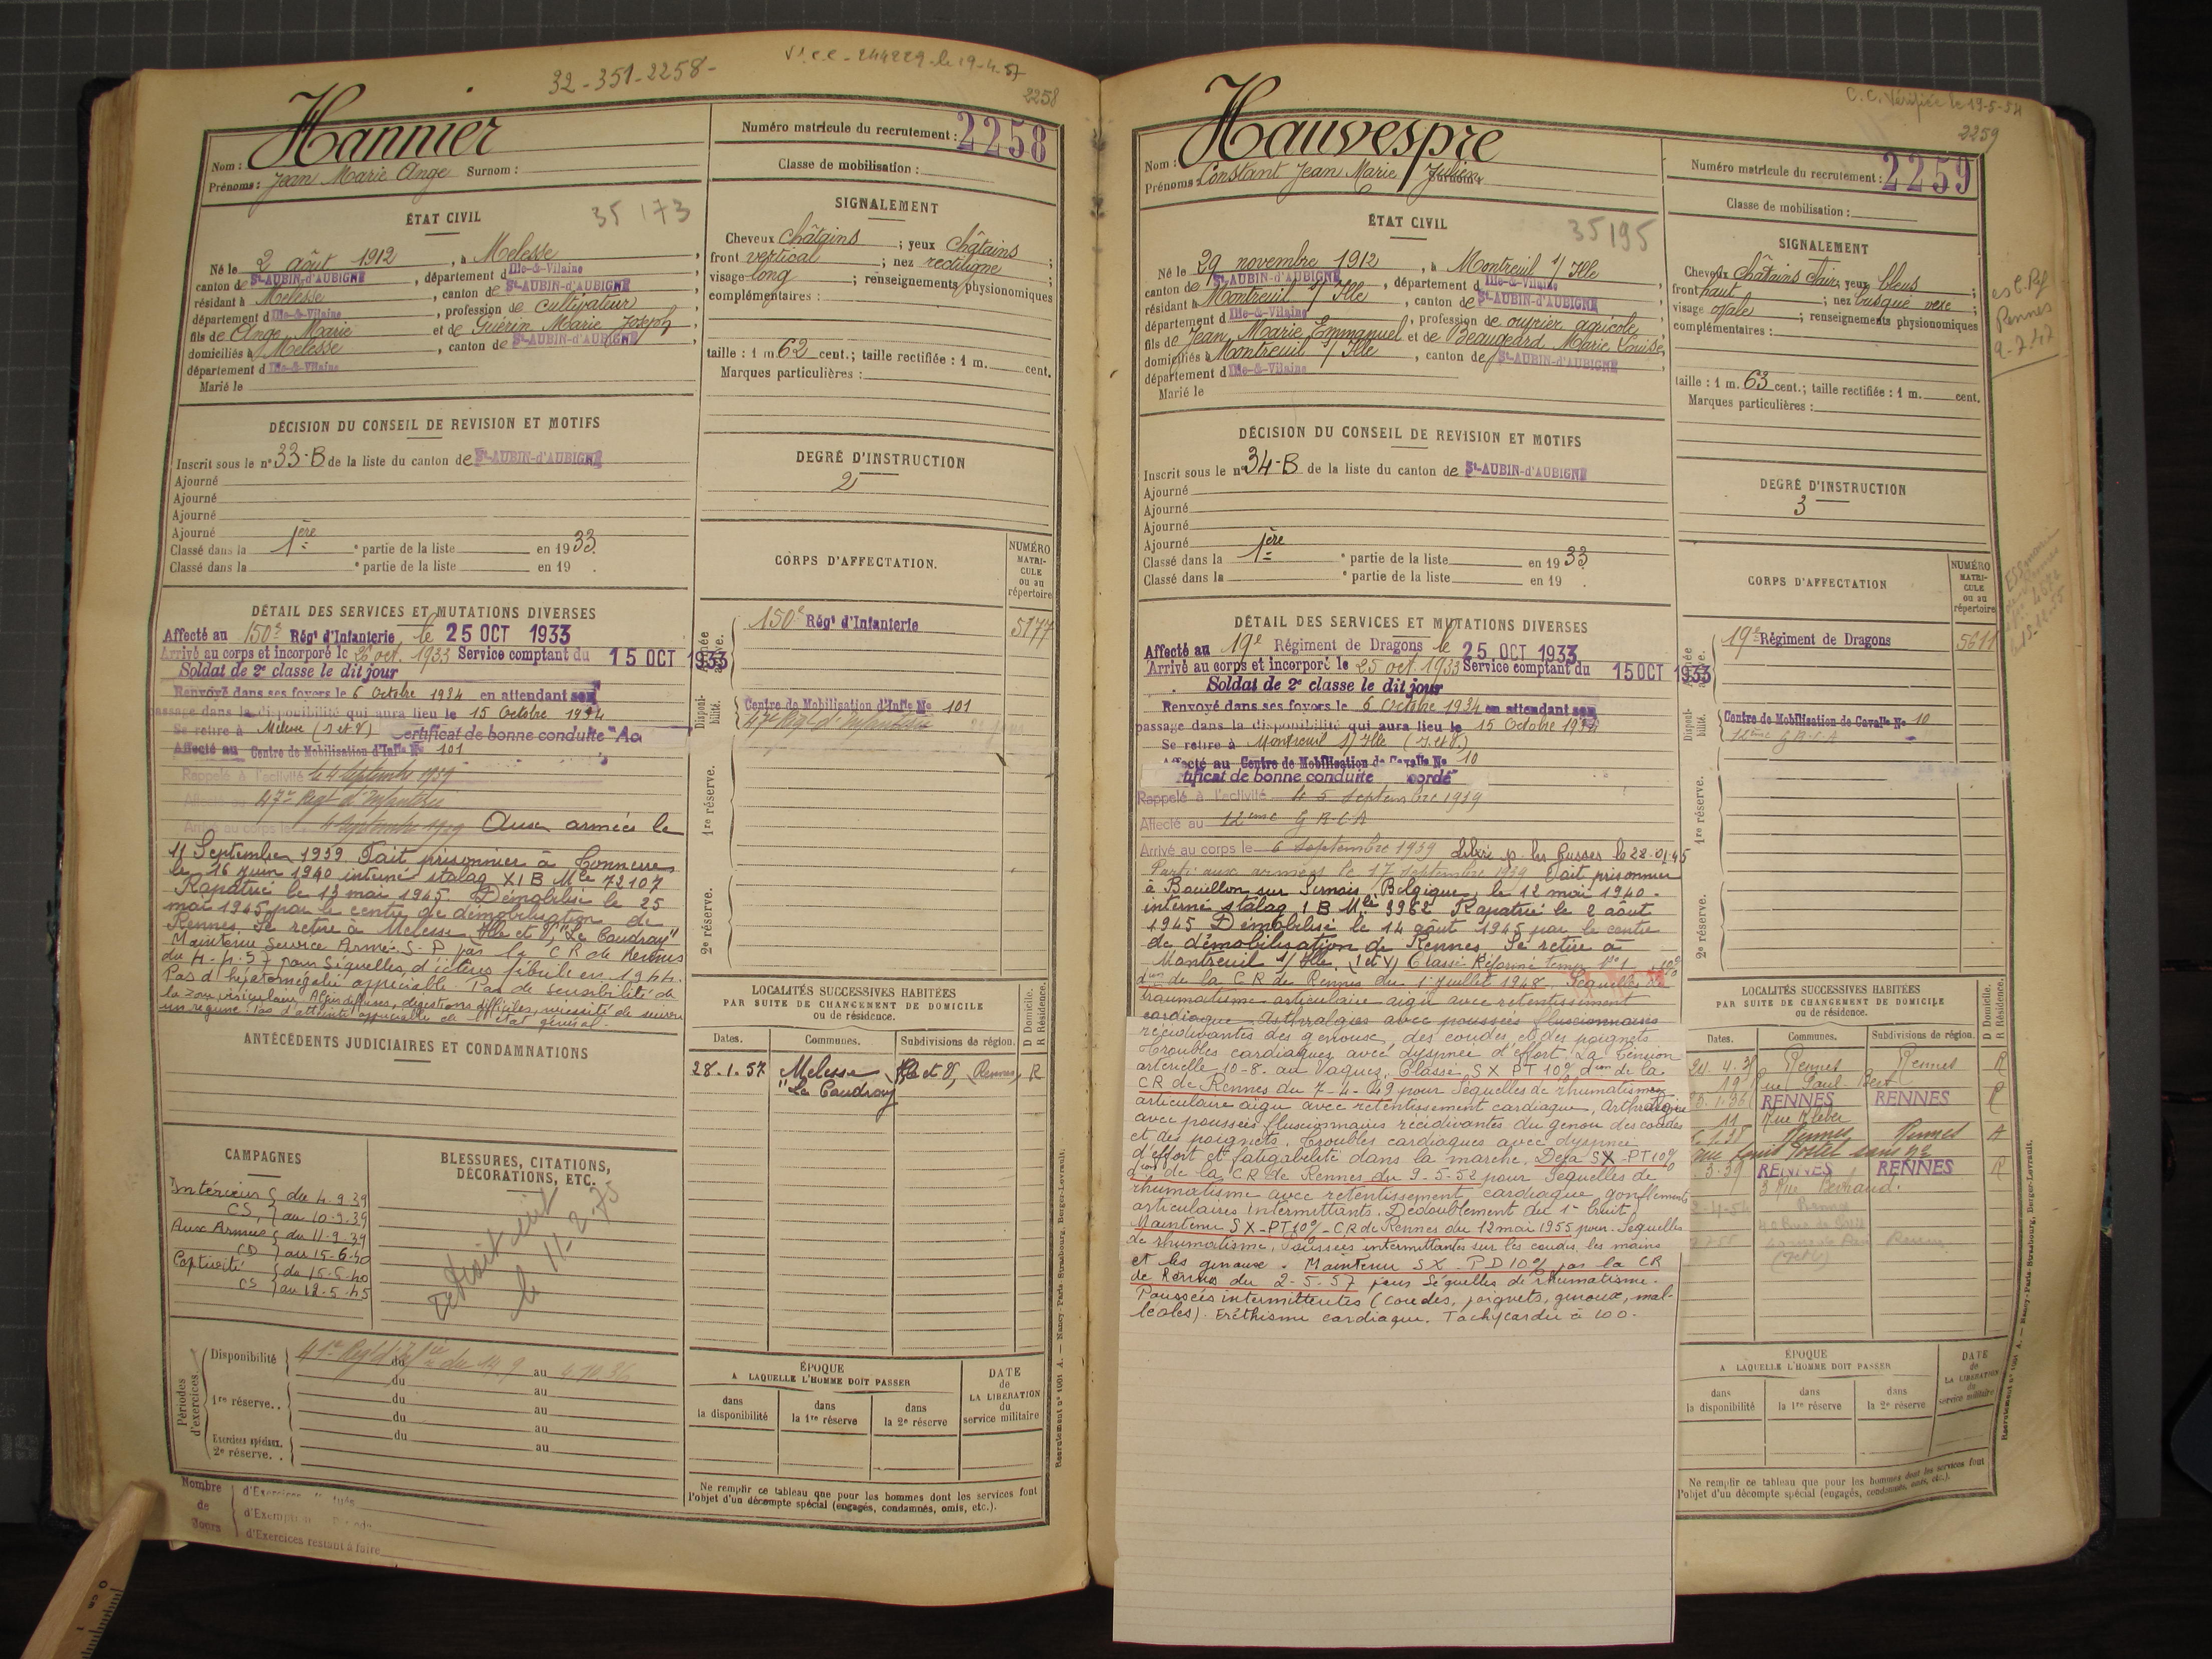 32-351-2258-
Vt. C.C. - 244229 - le 19-4-57
2258
Nom : Hannier
Prénoms : Jean Marie Ange Surnom :
Numéro matricule du recrutement : 2258
Classe de mobilisation :
ÉTAT CIVIL
35 173
Né le 2 août 1912, à Melesse,
canton de St-AUBIN-d'AUBIGNÉ, département d Ille-&-Vilaine
résidant à Melesse, canton de St-AUBIN-d'AUBIGNÉ
département d Ille-&-Vilaine, profession de cultivateur
fils de Ange Marie et de Guérin Marie Joseph,
domiciliés à Melesse, canton de St-AUBIN-d'AUBIGNÉ,
département d Ille-&-Vilaine
Marié le
SIGNALEMENT
Cheveux châtains ; yeux châtains ;
front vertical ; nez rectiligne ;
visage long ; renseignements physionomiques
complémentaires :
taille : 1 m. 62 cent.; taille rectifiée : 1 m. cent.
Marques particulières :
DÉCISION DU CONSEIL DE REVISION ET MOTIFS
Inscrit sous le n° 33-B de la liste du canton de St-AUBIN-d'AUBIGNÉ
Ajourné
Ajourné
Ajourné
Ajourné
Classé dans la 1ère partie de la liste en 1933.
Classé dans la partie de la liste en 19 .
DEGRÉ D'INSTRUCTION
2
CORPS D'AFFECTATION.
NUMÉRO MATRICULE ou au répertoire
150e Régt d'Infanterie 5177
Centre de Mobilisation d'Inf̃ie No 101
47e Régt d'Infanterie
Disponibilité.
1re réserve.
2e réserve.
DÉTAIL DES SERVICES ET MUTATIONS DIVERSES
Affecté au 150e Régt d'Infanterie, le 25 OCT 1933
Arrivé au corps et incorporé le 26 oct. 1933 Service comptant du 15 OCT 1933
Soldat de 2e classe le dit jour
Renvoyé dans ses foyers le 6 Octobre 1934 en attendant son
passage dans la disponibilité qui aura lieu le 15 Octobre 1934
Se retire à Melesse (I et V) Certificat de bonne conduite "Ac
Affecté au Centre de Mobilisation d'Infie No 101
Rappelé à l'activité le 4 Septembre 1939
Affecté au 47e Régt d'Infanterie
Arrivé au corps le 4 Septembre 1939 Aux armées le
11 Septembre 1939 Fait prisonnier à Connerre
le 16 juin 1940 interné stalag XI B Mle 72107
Rapatrié le 13 mai 1945. Démobilisé le 25
mai 1945 par le centre de démobilisation de
Rennes. Se retire à Melesse Ille et V, "Le Coudray"
Maintenu Service Armé S-P par la C R de Rennes
du 4-4-57 pour Séquelles d'ictère fébrile en 1944.
Pas d'hépatomégalie appréciable Pas de sensibilité de
la zone vésiculaire. Algies diffuses, digestions difficiles, nécessité de suivre
un régime. Pas d'atteinte appréciable de l'état général.
ANTÉCÉDENTS JUDICIAIRES ET CONDAMNATIONS
LOCALITÉS SUCCESSIVES HABITÉES
PAR SUITE DE CHANGEMENT DE DOMICILE
ou de résidence.
D Domicile. R Résidence.
Dates. Communes. Subdivisions de région.
28.1.57 Melesse (Ille et V) Rennes R
"Le Coudray"
CAMPAGNES
Intérieur du 4.9.39
CS, au 10.9.39
Aux Armées du 11.9.39
CD au 15-6-40
Captivité de 15-5-40
CS au 12.5.45
BLESSURES, CITATIONS, DÉCORATIONS, ETC.
le 11-2-75
Périodes d'exercices.
Disponibilité 41e Regt d'Infie du 14 9 au 4 10 36
du au
1re réserve.. du au
du au
Exercices spéciaux. 2e réserve. . du au
ÉPOQUE
A LAQUELLE L'HOMME DOIT PASSER
dans la disponibilité
dans la 1re réserve
dans la 2e réserve
DATE de LA LIBÉRATION du service militaire
Nombre de Jours
d'Exercices
d'Exercices restant à faire
Ne remplir ce tableau que pour les hommes dont les services font
l'objet d'un décompte spécial (engagés, condamnés, omis, etc.).
Recrutement n° 1001 A. — Nancy-Paris-Strasbourg, Berger-Levrault.
C.C. Vérifiée le 19-5-54
2259
Nom : Hauvespre
Prénoms Constant Jean Marie Julien Surnom :
Numéro matricule du recrutement : 2259
Classe de mobilisation :
ÉTAT CIVIL
35195
Né le 29 novembre 1912, à Montreuil s/ Ille
canton de St-AUBIN-d'AUBIGNÉ, département d Ille-&-Vilaine
résidant à Montreuil s/ Ille, canton de St-AUBIN-d'AUBIGNÉ
département d Ille-&-Vilaine, profession de ouvrier agricole
fils de Jean Marie Emmanuel et de Beaugeard Marie Louise
domiciliés à Montreuil s/ Ille, canton de St-AUBIN-d'AUBIGNÉ
département d Ille-&-Vilaine
Marié le
SIGNALEMENT
Cheveux châtains clair, yeux bleus ;
front haut ; nez busqué vexe ;
visage ovale ; renseignements physionomiques
complémentaires :
taille : 1 m. 63 cent.; taille rectifiée : 1 m. cent.
Marques particulières :
Rennes
DÉCISION DU CONSEIL DE REVISION ET MOTIFS
Inscrit sous le n° 34-B de la liste du canton de St-AUBIN-d'AUBIGNÉ
Ajourné
Ajourné
Ajourné
Ajourné
Classé dans la 1ère partie de la liste en 1933.
Classé dans la partie de la liste en 19 .
DEGRÉ D'INSTRUCTION
3
CORPS D'AFFECTATION
NUMÉRO MATRICULE ou au répertoire
19e Régiment de Dragons 5611
Centre de Mobilisation de Cavalie No 10
12ème G.R.C.A
Disponibilité.
1re réserve.
2e réserve.
DÉTAIL DES SERVICES ET MUTATIONS DIVERSES
Affecté au 19e Régiment de Dragons le 25 OCT 1933
Arrivé au corps et incorporé le 25 oct. 1933 Service comptant du 15 OCT 1933
Soldat de 2e classe le dit jour
Renvoyé dans ses foyers le 6 Octobre 1934 en attendant son
passage dans la disponibilité qui aura lieu le 15 Octobre 1934
Se retire à Montreuil s/ Ille (I. et V.)
Affecté au Centre de Mobilisation de Cavalie No 10
tificat de bonne conduite cordé"
Rappelé à l'activité le 5 Septembre 1939
Affecté au 12ème G R C A
Arrivé au corps le 6 Septembre 1939 Libéré p. les Russes le 28-01-45
Parti aux armées le 17 septembre 1939 Fait prisonnier
à Bouillon sur Semois, Belgique, le 12 mai 1940.
interné stalag I B Mle 3962 Rapatrié le 2 août
1945 Démobilisé le 14 août 1945 par le centre
de démobilisation de Rennes Se retire à
Montreuil s/ Ille. (I et V) Classé Réformé Temp. No 1 10%
don de la C R de Rennes du 1 Juillet 1948 Séquelles de
traumatisme articulaire aigu avec retentissement
cardiaque. Arthralgies avec poussées fluxionnaires
récidivantes des genoux, des coudes et des poignets
Troubles cardiaques avec dyspnée d'effort. La Tension
artérielle 10-8. au Vaquez. Classé SX PT 10% don de la
CR de Rennes du 7-4-49 pour Séquelles de rhumatisme
articulaire aigu avec retentissement cardiaque, Arthralgie
avec poussées fluxionnaires récidivantes du genou des coudes
et des poignets. Troubles cardiaques avec dyspnée
d'effort et fatigabilité dans la marche. Déjà SX-PT 10%
don de la CR de Rennes du 9-5-52 pour Séquelles de
rhumatisme avec retentissement cardiaque gonflements
articulaires intermittants. Dédoublement du 1er bruit.
Maintenu SX-PT 10% - CR de Rennes du 12 mai 1955 pour Séquelles
de rhumatisme. Poussées intermittantes sur les coudes, les mains
et les genoux. Maintenu SX-PD 10% par la CR
de Rennes du 2-5-57 pour Séquelles de rhumatisme.
Poussées intermittentes (coudes, poignets, genoux, mal-
léoles). Eréthisme cardiaque. Tachycardie à 100.
LOCALITÉS SUCCESSIVES HABITÉES
PAR SUITE DE CHANGEMENT DE DOMICILE
ou de résidence.
D Domicile. R Résidence.
Dates. Communes. Subdivisions de région.
Rennes Rennes R
19 rue Paul Bert
RENNES RENNES R
11 Rue Kléber
Rennes Rennes A
3.39 RENNES RENNES R
3 Rue Bertrand.
ÉPOQUE
A LAQUELLE L'HOMME DOIT PASSER
dans la disponibilité
dans la 1re réserve
dans la 2e réserve
DATE de LA LIBÉRATION du service militaire
Ne remplir ce tableau que pour les hommes dont les services font
l'objet d'un décompte spécial (engagés, condamnés, omis, etc.).
Recrutement n° 1001 A. — Nancy-Paris-Strasbourg, Berger-Levrault.